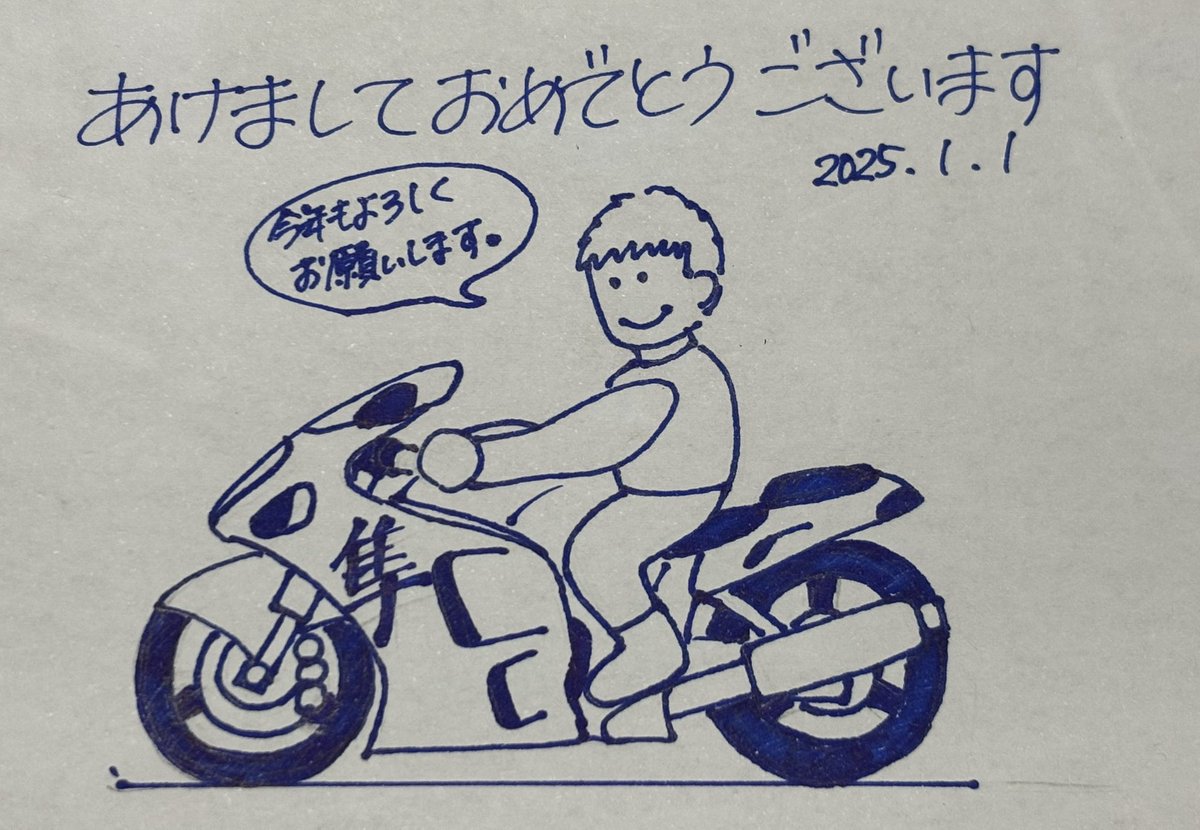 あけましておめでとうございます
2025.1.1
今年もよろしく
お願いします。
隼